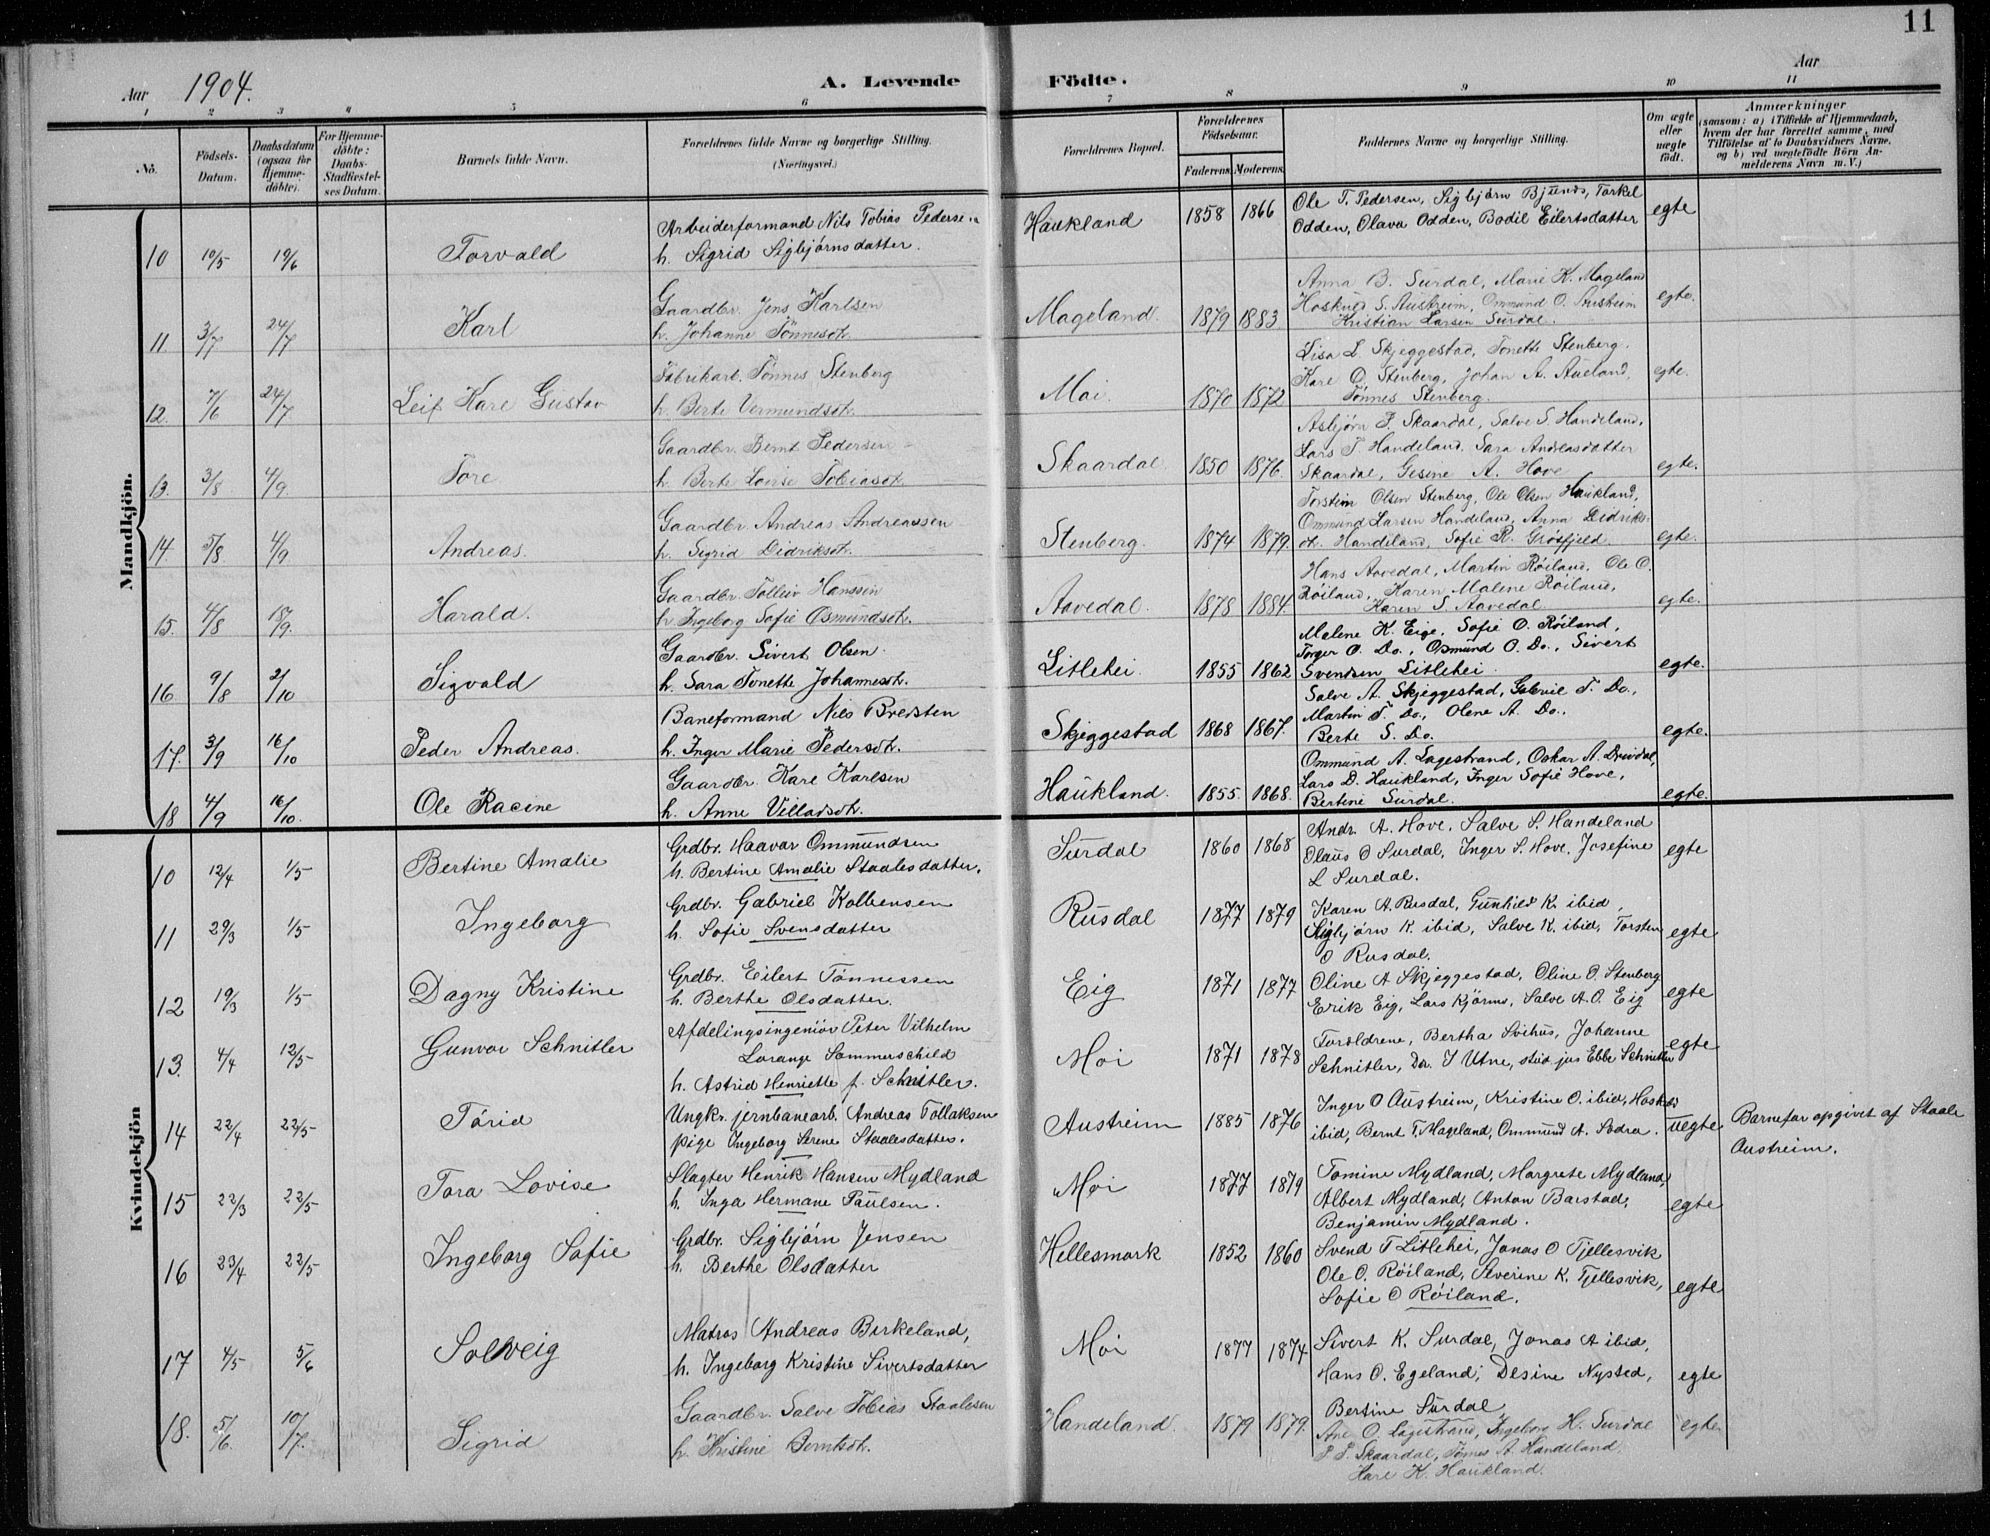 11
Aar 1904. A. Levende Födte. Aar
1 2 3 4 5 6 7 8 9 10 11
No. Födsels-Datum. Daabsdatum (ogsaa for Hjemme-döbte). For Hjemme-döbte: Daabs-Stadfæstel-ses Datum. Barnets fulde Navn. Forældrenes fulde Navne og borgerlige Stilling. (Næringsvei.) Forældrenes Bopæl. Forældrenes Födselsaar. Faderens. Moderens. Faddernes Navne og borgerlige Stilling. Om ægte eller uægte födt. Anmærkninger (saasom: a) i Tilfælde af Hjemmedaab, hvem der har forrettet samme, med Tilföielse af to Daabsvidners Navne, og b) ved uægtefödte Börn An-melderens Navn m. V.)
Mandkjön.
10 10/5 19/6 Torvald Arbeiderformand Nils Tobias Pedersen
h. Sigrid Sigbjörnsdatter. Haukland 1858 1866 Ole T. Pedersen, Sigbjörn Bjunes, Torkel
Odden, Olava Odden, Bodil Eilertsdatter egte
11 3/7 24/7 Karl Gaardbr. Jens Karlsen
h. Johanne Tönnesdt. Mageland. 1879 1883 Anna B. Surdal, Marie K. Mageland
Hoskuld S. Austreim, Ommund O. Austreim
Kristian Larsen Surdal. egte.
12. 7/6 24/7 Leif Kare Gustav Fabrikarb. Tönnes Stenberg
h. Berte Vermundsdt. Moi. 1870 1872 Lisa L. Skjeggestad, Tonette Stenberg.
Kare O. Stenberg, Johan A. Aueland,
Tönnes Stenberg. egte.
13. 3/8 4/9. Tore Gaardbr. Bernt Pedersen
h. Berte Lovise Tobiasdt. Skaardal 1850 1876. Asbjörn P. Skaardal, Salve S. Handeland,
Lars T. Handeland. Sara Andreasdatter
Skaardal, Gesine A. Hove egte.
14. 5/8. 4/9 Andreas. Gaardbr. Andreas Andreassen
h. Sigrid Didriksdt. Stenberg. 1874 1879. Torstein Olsen Stenberg, Ole Olsen Haukland,
Ommund Larsen Handeland, Anna Didriks-
dt. Handeland, Sofie R. Grösfjeld. egte.
15. 4/8 18/9. Harald. Gaardbr. Tolleiv Hanssen
h. Ingeborg Sofie Osmundsdt. Aavedal. 1878 1884 Hans Aavedal, Martin Röiland, Ole O.
Röiland, Karen Malene Röiland,
Karen S. Aavedal. egte.
16. 9/8 2/10 Sigvald Gaardbr. Sivert Olsen.
h. Sara Tonette Johannesdt. Litlehei 1855 1862 Malene K. Eige, Sofie O. Röiland,
Torger O. Do., Osmund O. Do., Sivert
Svendsen Litlehei. egte.
17. 3/9 16/10 Peder Andreas. Baneformand Nils Bredsten
h. Inger Marie Pedersdt. Skjeggestad 1868 1867. Salve A. Skjeggestad, Gabriel T. Do.,
Martin T. Do., Olene A. Do.,
Berte S. Do. egte.
18 4/9 16/10. Ole Racine Gaardbr. Karl Karlsen
h. Anne Villadsdt. Haukland. 1855. 1868. Ommund A. Lagestrand, Oskar A. Dreidal,
Lars D. Haukland, Inger Sofie Hove,
Bertine Surdal. egte.
Kvindekjön
10 12/4 1/5 Bertine Amalie Grdbr. Haavar Ommundsen
h. Bertine Amalie Staalesdatter. Surdal 1860 1868 Andr. A. Hove, Salve S. Handeland
Olaus O Surdal, Inger S. Hove, Josefine
L Surdal. egte
11 29/3 1/5 Ingeborg Grdbr. Gabriel Kolbensen
h. Sofie Svensdatter Rusdal 1877 1879 Karen A. Rusdal, Gunhild K. ibid,
Sigbjörn K. ibid, Salve K. ibid, Torsten
O Rusdal. egte
12 19/3 1/5 Dagny Kristine Grdbr. Eilert Tönnessen
h. Berthe Olsdatter. Eig 1871 1877 Oline A Skjeggestad, Oline O. Stenberg
Erik Eig, Lars Kjörms, Salve A. O. Eig egte
13. 4/4 12/5 Gunvor Schnitler Afdelingsingeniör Peter Vilhelm
Lorange Sommerschild
h. Astrid Henriette f. Schnitler. Moi 1871 1878 Foreldrene, Bertha Svihus, Johanne
Schnitler, Dr. I Utne, stud jus Ebbe Schnitler egte
14 22/4 22/5 Torid Ungkr. jernbanearb. Andreas Tollaksen
pige Ingeborg Serene Staalesdatter. Austreim 1885 1876 Inger O Austreim, Kristine O. ibid, Hoskul
ibid, Bernt T. Mageland, Ommund A. Sodra. uegte Barnefar opgivet af Staale
Austreim.
15 22/3 22/5 Tora Lovise Slagter Henrik Hansen Mydland
h. Inga Hermane Paulsen. Moi 1877 1879 Tomine Mydland, Margrete Mydland,
Albert Mydland, Anton Barstad,
Benjamin Mydland. egte
16 23/4 22/5 Ingeborg Sofie Grdbr. Sigbjörn Jensen
h. Berthe Olsdatter Hellesmark 1852 1860 Svend T Litlehei, Jonas O Tjellesvik
Ole O. Röiland, Severine K. Tjellesvik,
Sofie O Röiland. egte
17 4/5 5/6 Solveig Matros Andreas Birkeland,
h. Ingeborg Kristine Sivertsdatter Moi 1877 1874 Sivert K. Surdal, Jonas A ibid,
Hans O. Egeland, Desine Nysted,
Bertine Surdal egte
18. 5/6 10/7. Sigrid Gaardbr. Salve Tobias Staalesen
h. Kristine Berntsdt. Handeland. 1879 1879. Ane O. Lagestrand, Ingeborg H. Surdal
P. P. Skaardal, Tönnes A. Handeland
Karl K. Haukland. egte.